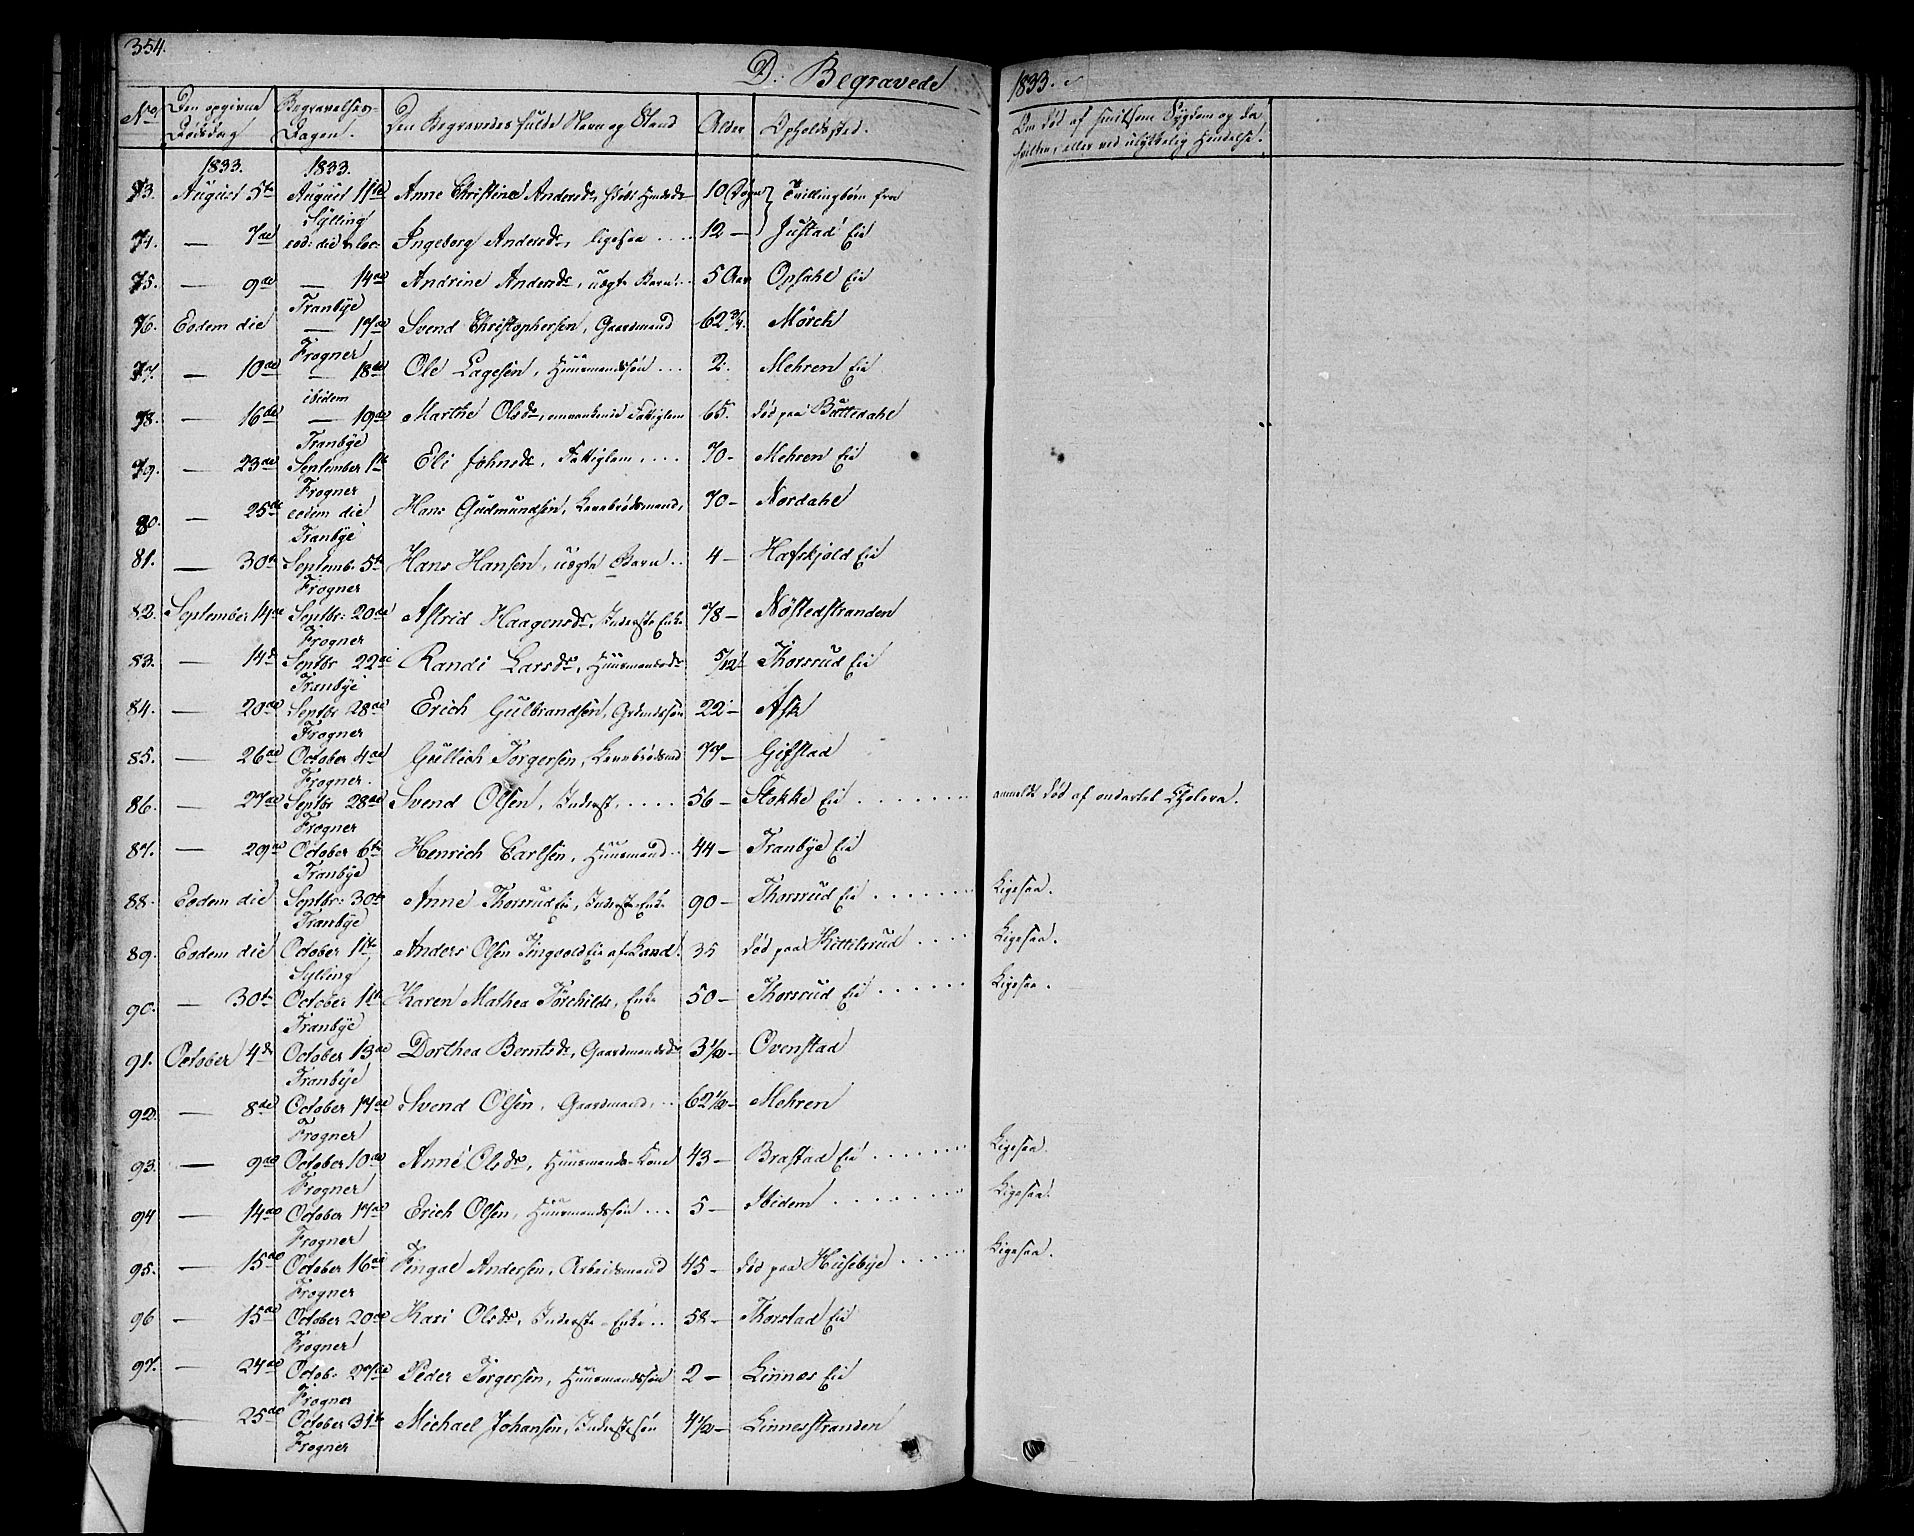 354.
D. Begravede 1833.
No Den opgivne Dödsdag Begravelses-Dagen. Den Begravedes fulde Navn og Stand Alder Opholdssted. Om död af smitsom Sygdom og da hvilken, eller ved ulykkelig Hendelse.
1833. 1833.
73. August 5te August 11te Anne Christine Andersdr, 10 Dage Tvillingbørn fra
Sylling
74. — 7de eod: die & loc: Ingeborg Andersdr, ligesaa .... 12 — Justad Eie
75. — 9de — 14de Andrine Andersdr, uægte Barn.. 5 Aar Opsahl Eie
Tranbye
76. Eodem die — 17de Svend Christophersen, Gaardmand 62 3/4. Mörch
Frogner
77. — 10de — 18de Ole Lagesen, Huusmandssön ... 2. Mehren Eie
ibidem
78. — 16de — 19de Marthe Olsdr, omvankende Fattiglem 65. död paa Buttedahl
Tranbye
79. — 23de September 1te Eli Johnsdr, Fattiglem .... 70 — Mehren Eie
Frogner
80. — 25de eodem die Hans Gudmundsen, Levebrödsmand, 70 — Nordahl
Tranbye
81. — 30te Septemb: 5te Hans Hansen, uægte Barn .. 4 — Hafskjold Eie
Frogner
82. September 14de Septbr: 20de Astrid Haagensdr, Inderste Enke 78 — Nöstedstranden
Frogner
83. — 14de Septbr 22de Randi Larsdr, Huusmandsdr 5/12 Thorsrud Eie
Tranbye
84. — 20de Septbr 28de Erich Gulbrandsen, Grdmdssön 22 — Ask
Frogner
85. — 26de October 4de Gullich Torgersen, Levebrödsmd 77 — Gifstad
Frogner.
86. — 27de Septbr 28de Svend Olsen, Inderst, ..... 56 — Stokke Eie ........ anmeldt död af ondartet Cholera.
Frogner
87. — 29de October 6te Henrich Carlsen, Huusmand .. 44 — Tranbye Eie
Tranbye
88. Eodem die Septbr: 30te Anne Thorsrud Eie, Inderste Enke 90 — Thorsrud Eie ....... Ligesaa.
Tranbye
89. Eodem die October 1te Anders Olsen Tingvold Eie af Land. 35 död paa Kittilsrud .... Ligesaa.
Sylling
90. — 30te October 1te Karen Mathea Torchildr, Enke 50 — Thorsrud Eie ...... Ligesaa.
Tranbye
91. October 4de October 13de Dorthea Berntsdr, Gaardmandsdr 3 1/2 — Ovenstad
Tranbye
92. — 8de October 17de Svend Olsen, Gaardmand, .. 62 1/2 — Mehren
Frogner
93. — 9de October 10de Anne Olsdr, Huusmands-Kone 43 — Brastad Eie ....... Ligesaa.
Frogner
94 — 14de October 17de Erich Olsen, Huusmandssön ... 5 — Ibidem ......... Ligesaa.
Frogner
95. — 15de October 16de Fingal Andersen, Arbeidsmand 45 — död paa Husebye ..... Ligesaa.
Frogner
96 — 15de October 20de Kari Olsdr, Inderste-Enke .. 58 — Thorstad Eie
Frogner
97. — 24de Octobr 27de Peder Torgersen, Huusmandssön 2 — Linnes Eie
Frogner
25de October 31te Michael Johansen, Inderstesön 4 1/2 — Linnesstranden
Frogner